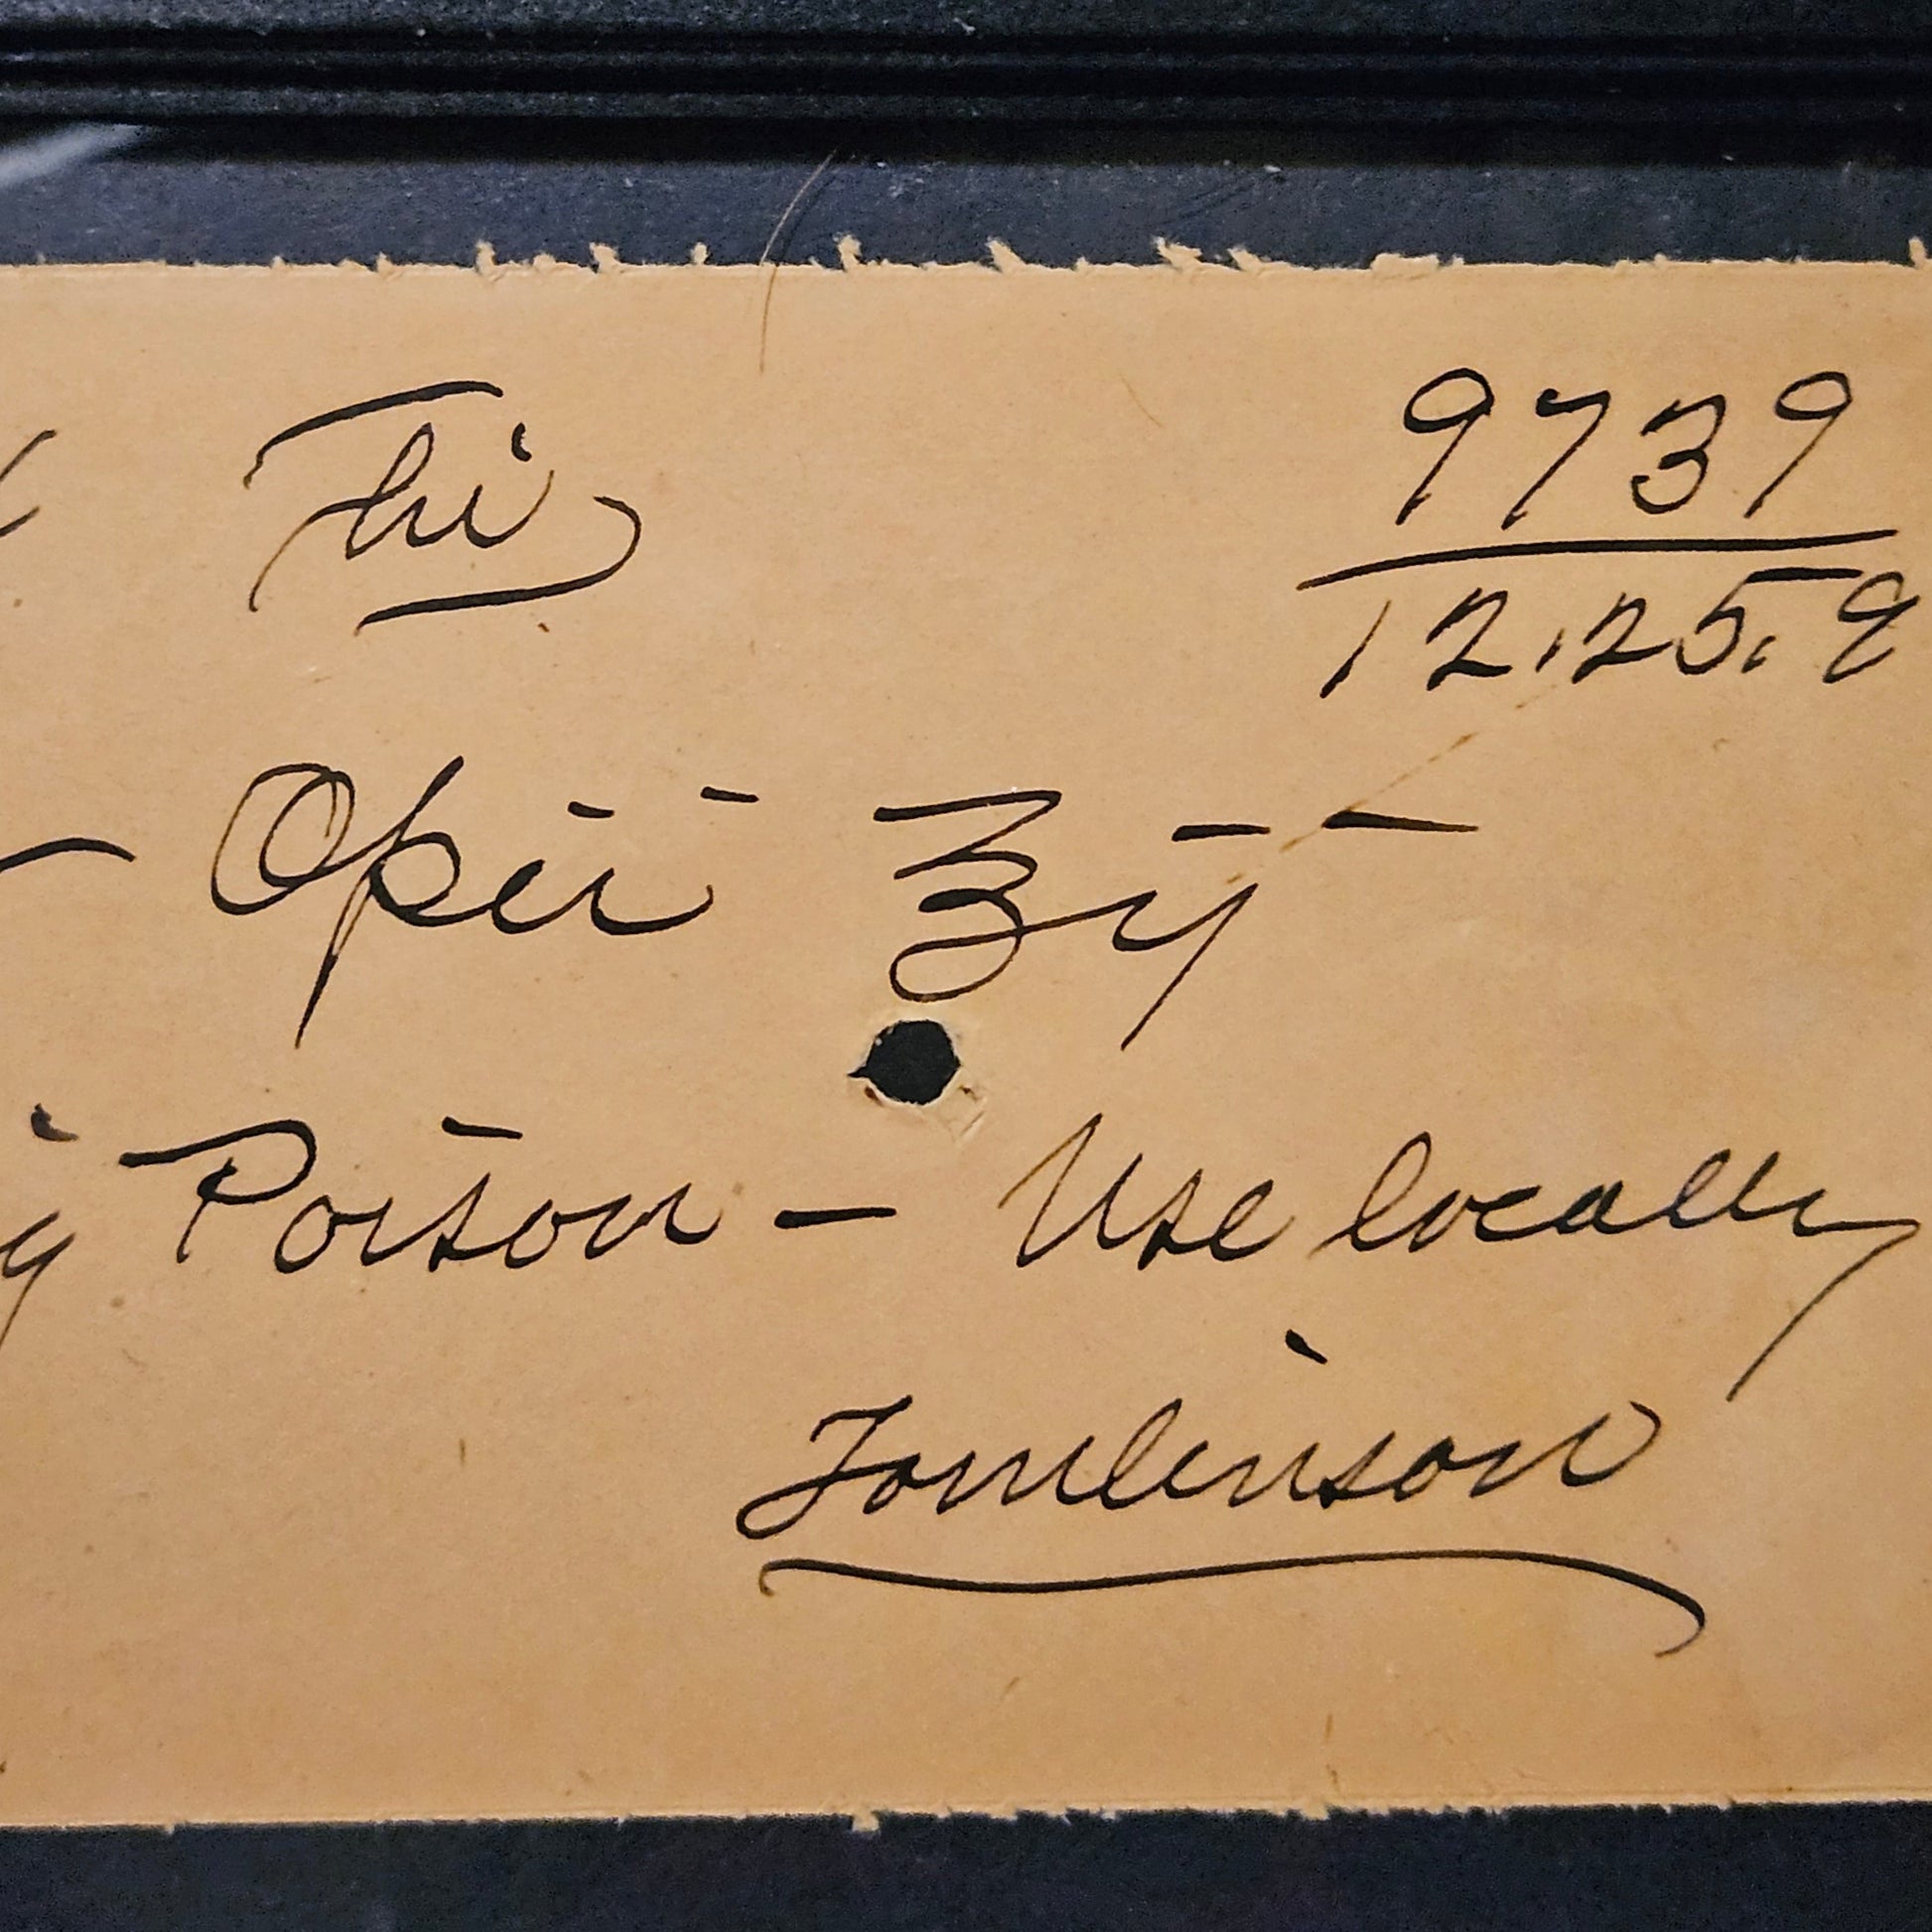 Thi
9739
12.25.9
Opii ℥ij
Poison - Use locally
Tomlinson